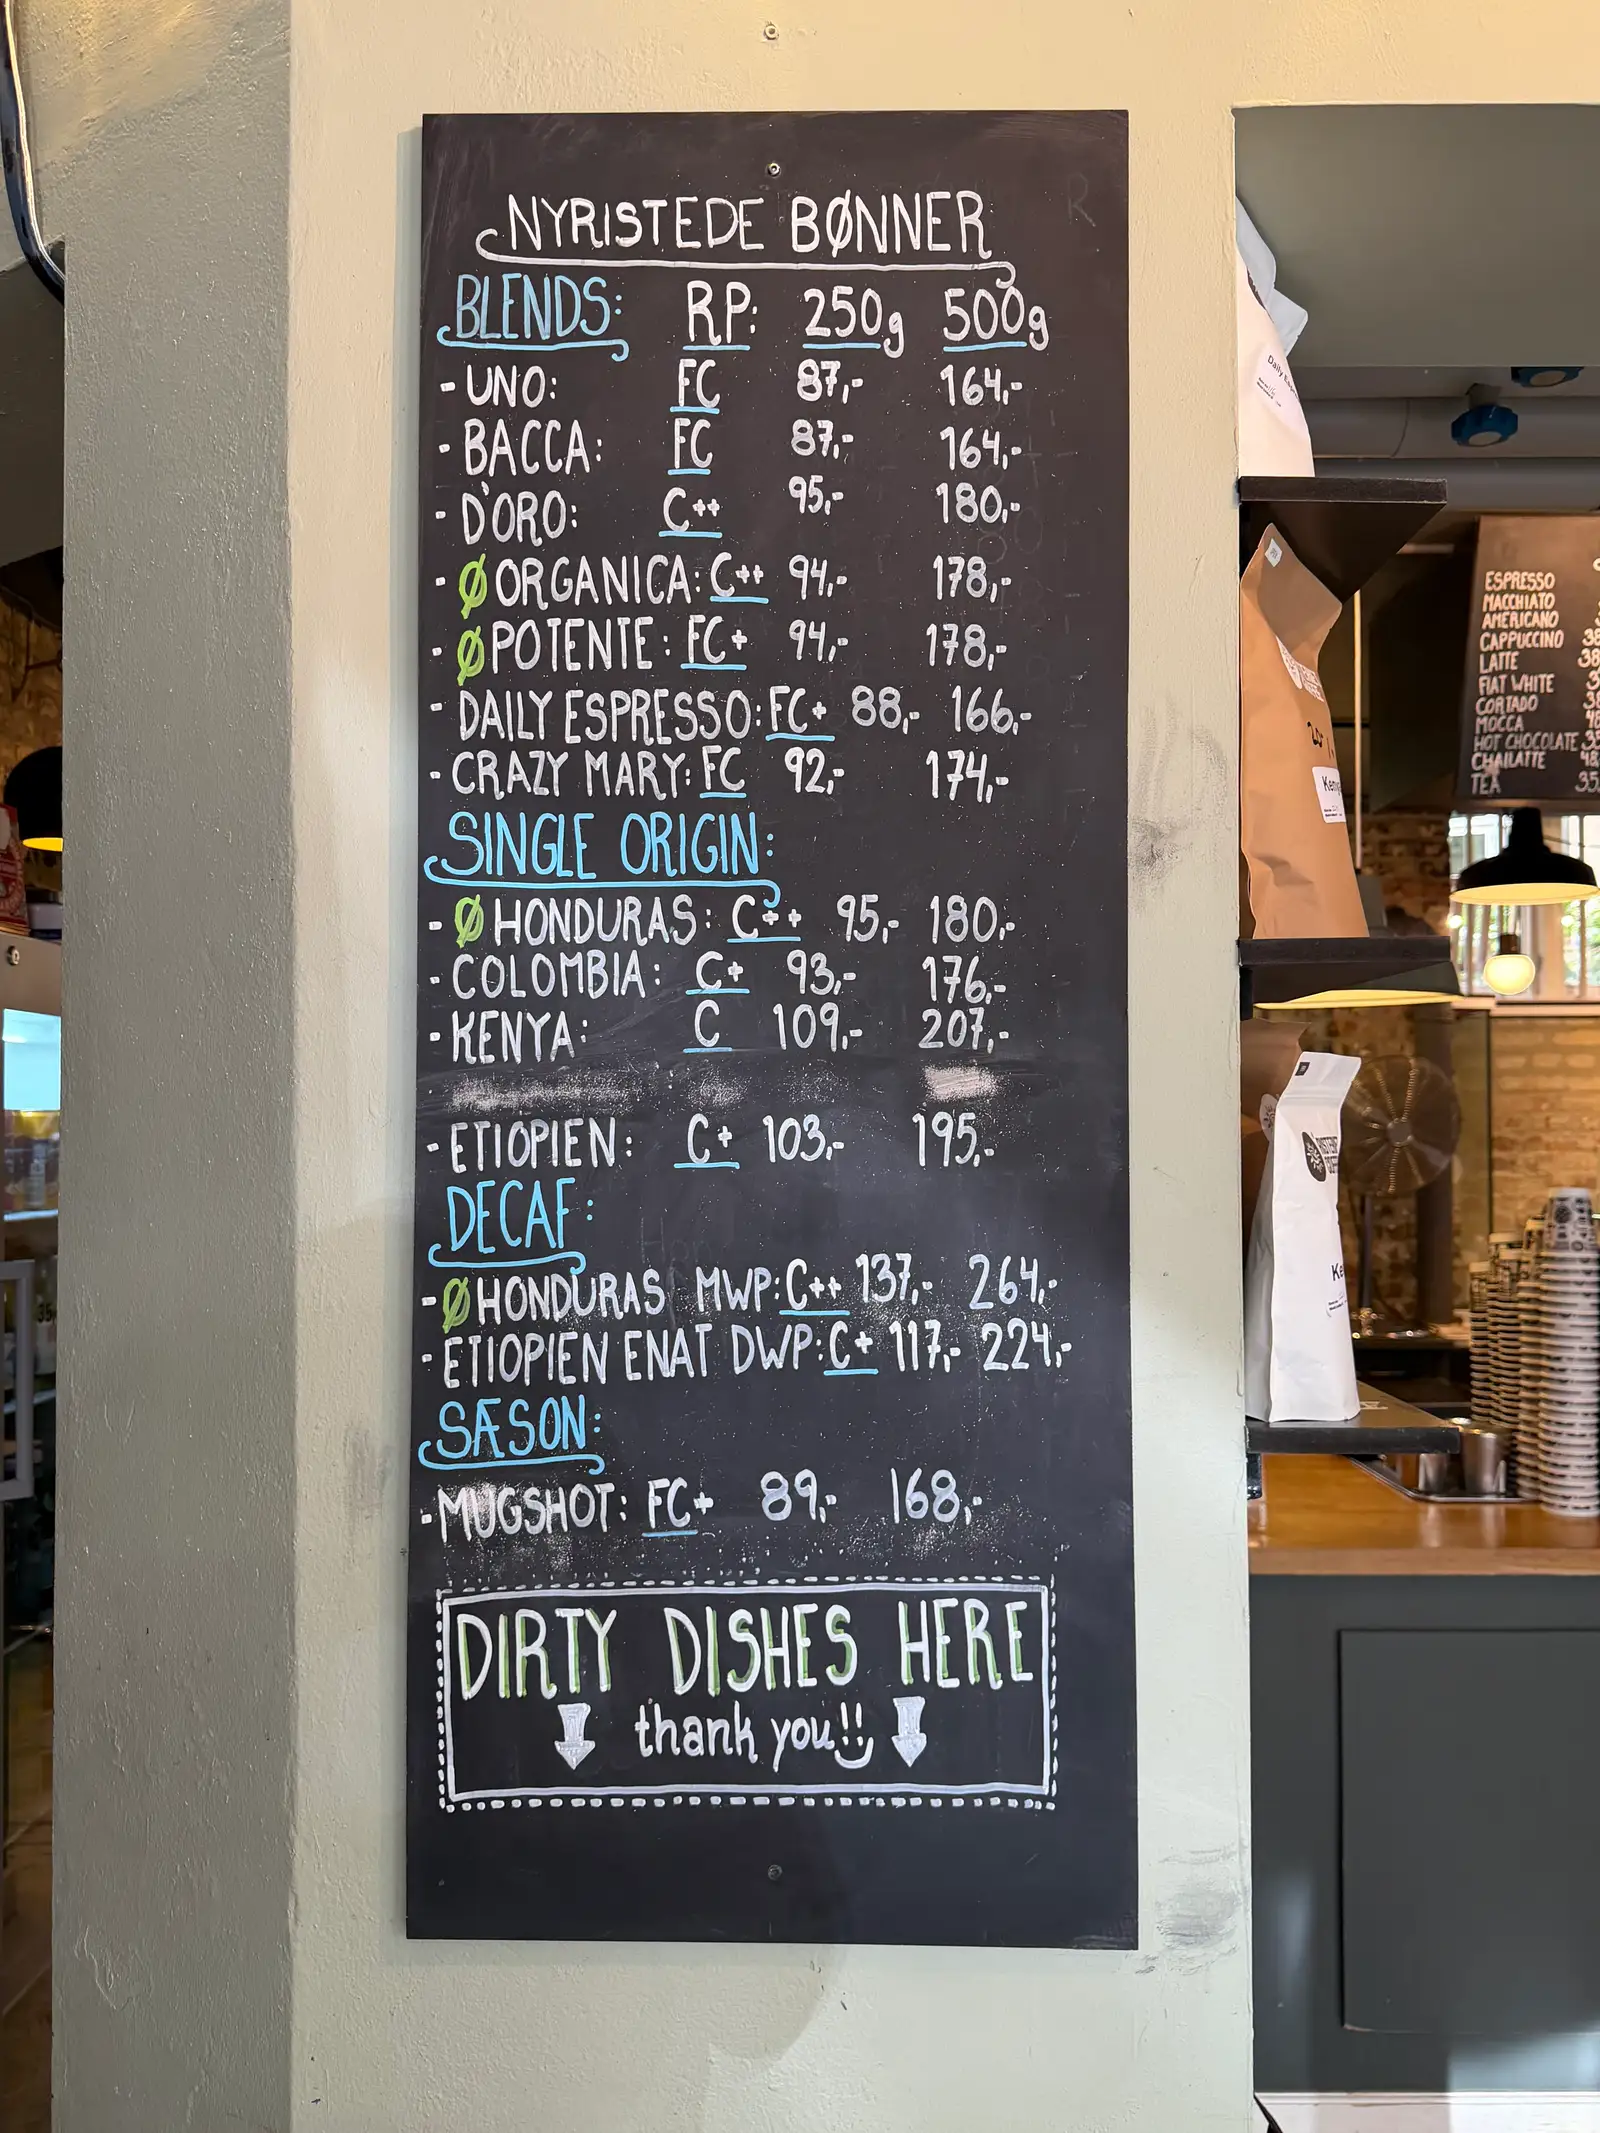 NYRISTEDE BØNNER
BLENDS: RP: 250g 500g
- UNO: FC 87,- 164,-
- BACCA: FC 87,- 164,-
- D'ORO: C++ 95,- 180,-
- Ø ORGANICA: C++ 94,- 178,-
- Ø POTENTE: FC+ 94,- 178,-
- DAILY ESPRESSO: FC+ 88,- 166,-
- CRAZY MARY: FC 92,- 174,-
SINGLE ORIGIN:
- Ø HONDURAS: C++ 95,- 180,-
- COLOMBIA: C+ 93,- 176,-
- KENYA: C 109,- 207,-
- ETIOPIEN: C+ 103,- 195,-
DECAF:
- Ø HONDURAS MWP: C++ 137,- 264,-
- ETIOPIEN ENAT DWP: C+ 117,- 224,-
SÆSON:
- MUGSHOT: FC+ 89,- 168,-
DIRTY DISHES HERE
thank you!!
Daily
ESPRESSO
MACCHIATO
AMERICANO
CAPPUCCINO 38
LATTE 38
FLAT WHITE
CORTADO
MOCCA
HOT CHOCOLATE
CHAILATTE
TEA 35